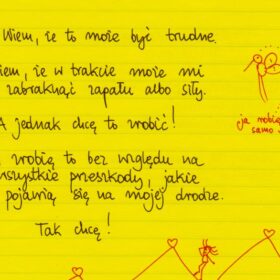 Wiem, że to może być trudne.
iem, że w trakcie może mi
zabraknąć zapału albo siły.
A jednak chcę to zrobić!
zrobię to bez względu na
wszystkie przeszkody, jakie
pojawią się na mojej drodze.
Tak chcę!
ja robię
samo